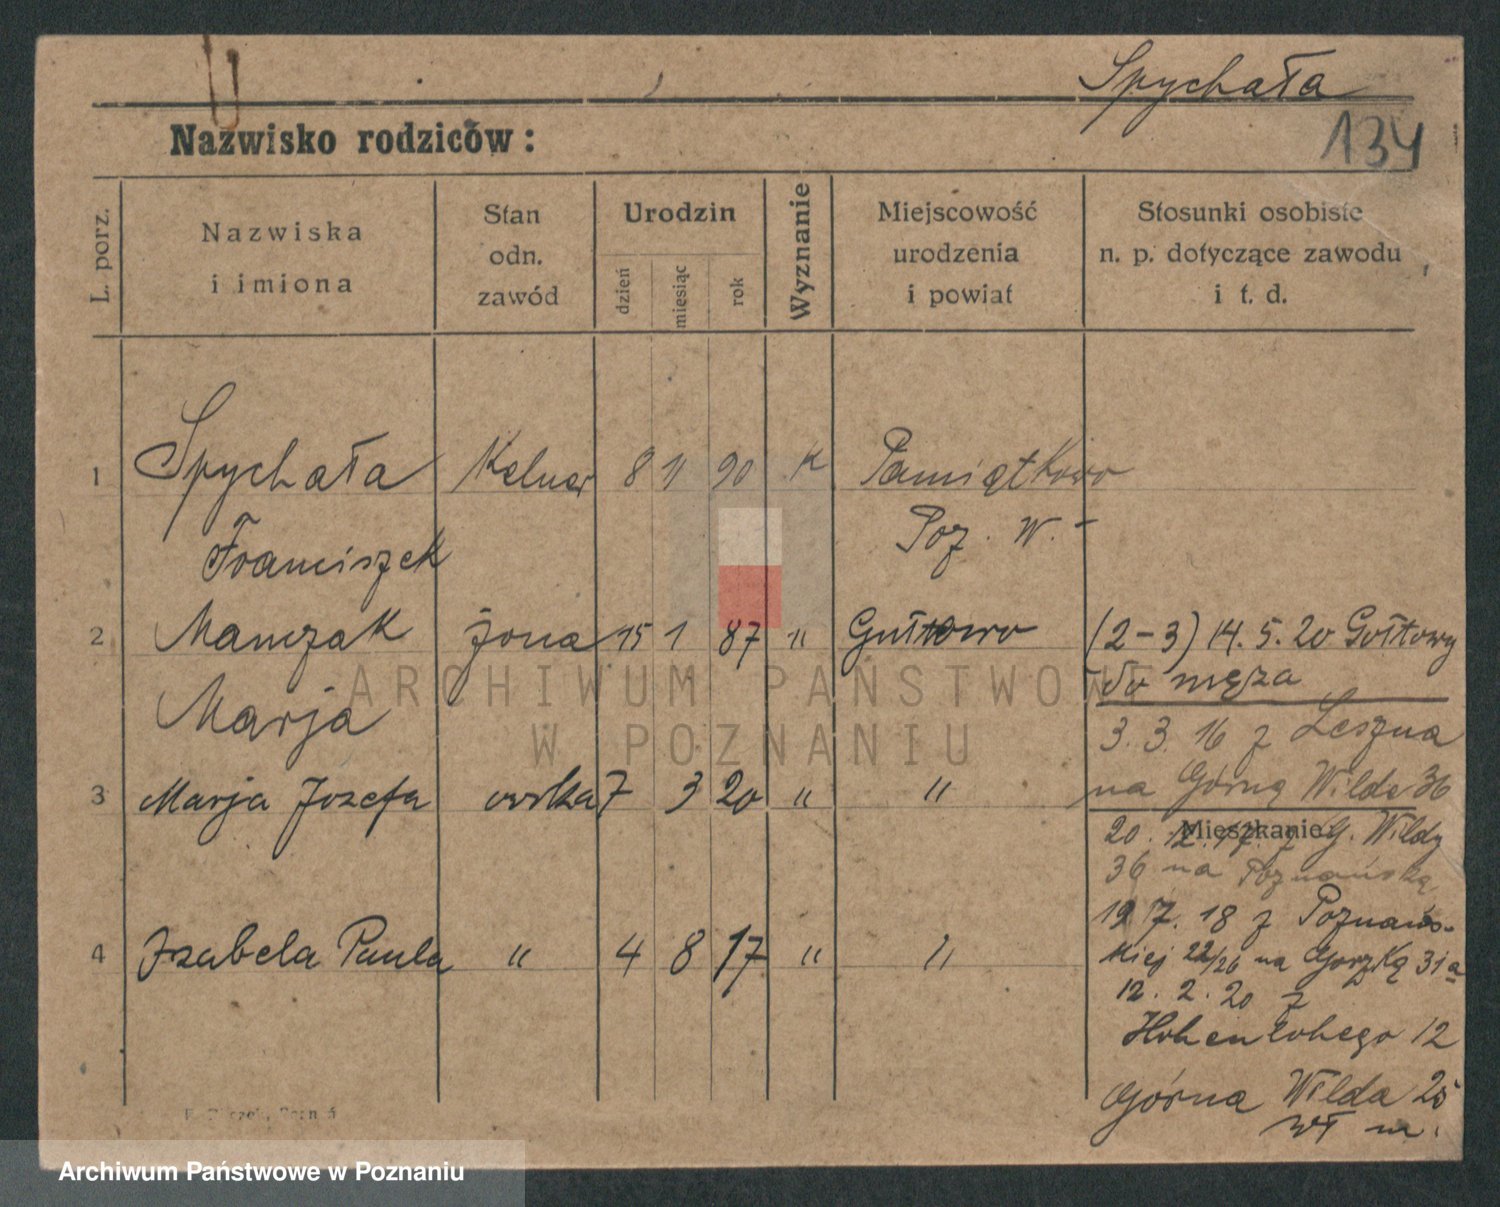 Spychała
134
Nazwisko rodziców:
L. porz.
Nazwiska
i imiona
Stan
odn.
zawód
Urodzin
dzień
miesiąc
rok
Wyznanie
Miejscowość
urodzenia
i powiat
Stosunki osobiste
n. p. dotyczące zawodu
i t. d.
1 Spychała Kelner 8 11 90 K Pamiątkowo
Franciszek Poz. W.
2 Manczak żona 15 1 87 " Gułtowo (2-3) 14. 5. 20 Gołtowy
Marja do męża
3. 3. 16 z Leszna
3 Marja Józefa córka 7 3 20 " " na Górną Wilde 36
Mieszkanie:
20. 12. 17. z G. Wildy
36 na Poznańską
19 7. 18 z Poznańs-
4 Izabela Paula " 4 8 17 " " kiej 22/26 na Gorzką 31a
12. 2. 20 z
Hohenlohego 12
Górna Wilda 25
wł m.
ARCHIWUM PAŃSTWOWE
W POZNANIU
Archiwum Państwowe w Poznaniu